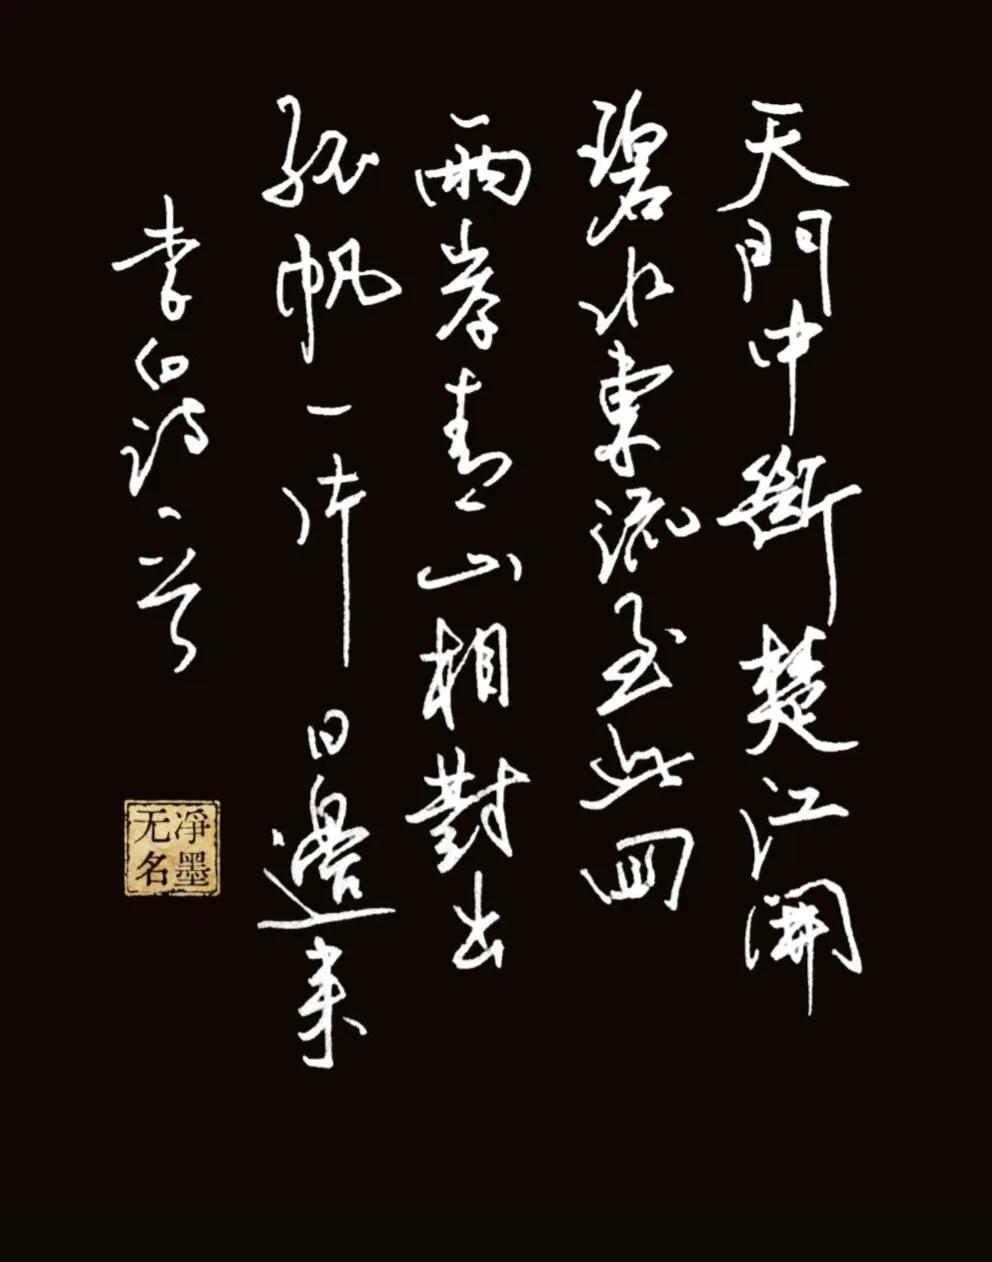 天門中斷楚江開
碧水東流至此回
兩岸青山相對出
孤帆一片日邊來
李白詩一首
凈墨
无名